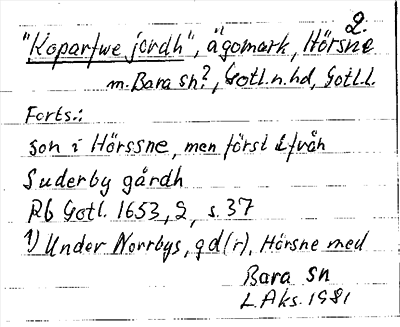 2.
"Koparfwe jordh", ägomark, Hörsne
m. Bara sn?, Gotl. n. hd, Gotl.l.
Forts.:
son i Hörssne, men först ifrån
Suderby gårdh
Rb Gotl. 1653, 2, s. 37
1) Under Norrbys, gd(r), Hörsne med
Bara sn
L Aks. 1981